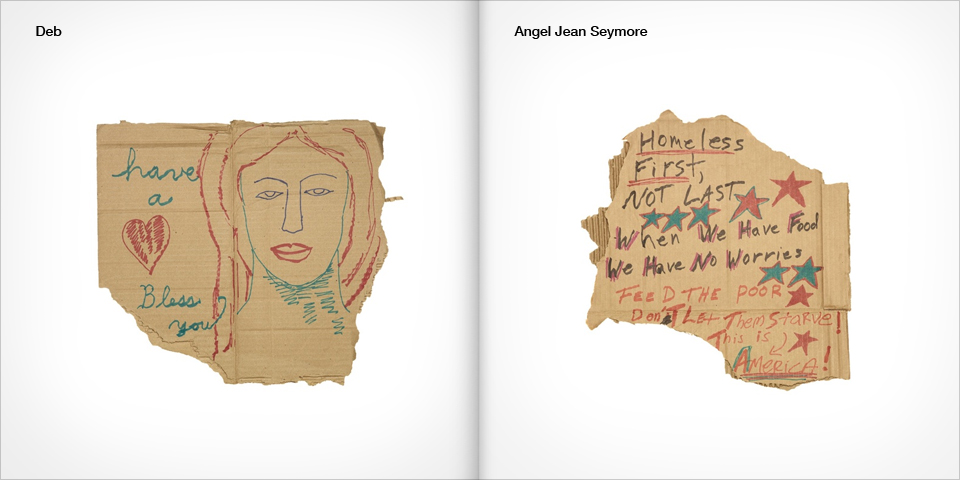 Deb
have
a
Bless
you
Angel Jean Seymore
Homeless
First,
NOT LAST
When We Have Food
We Have No Worries
FEED THE POOR
Don't Let Them Starve!
This is
America!